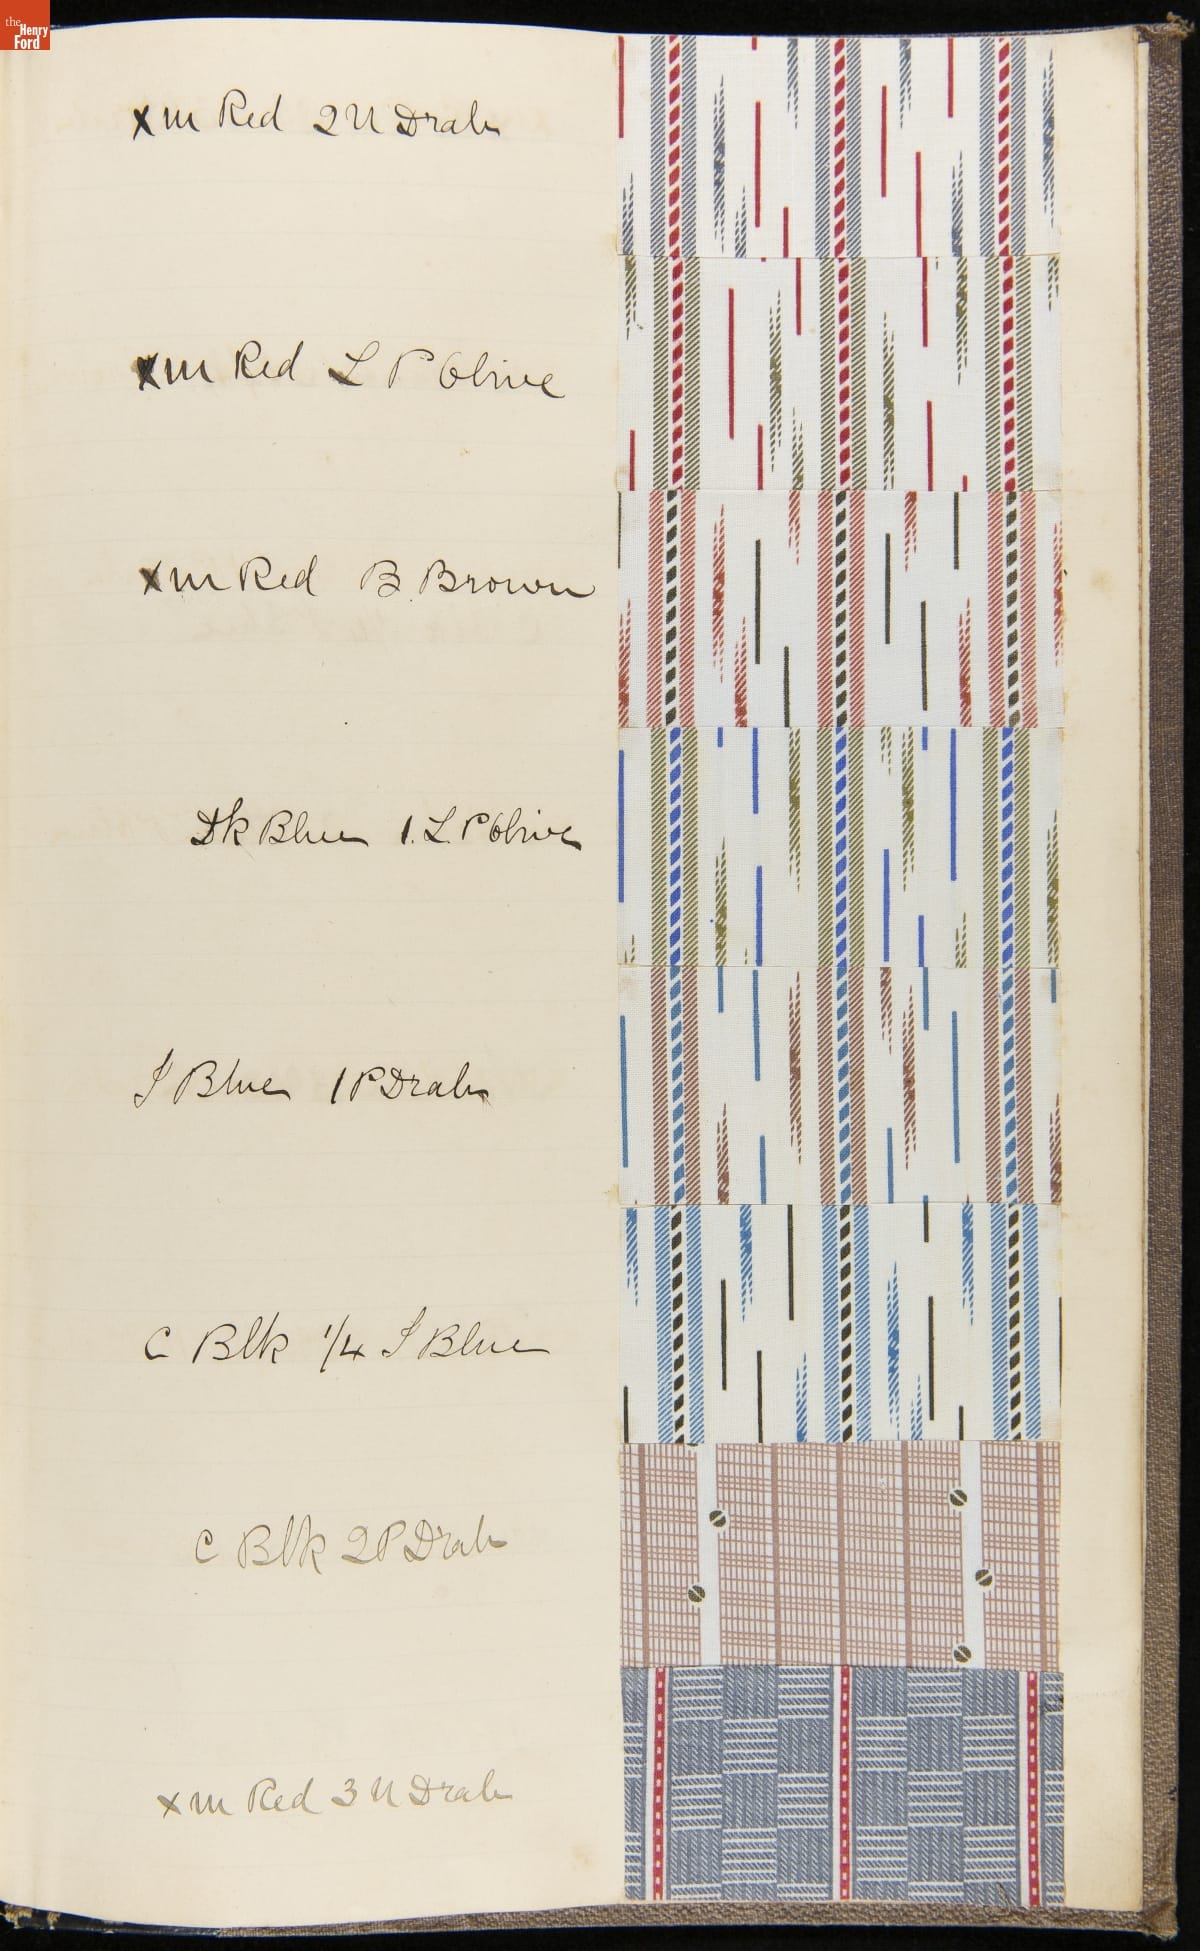 the
Henry
Ford
xm Red 2 N Drab
xm Red L P Olive
xm Red B. Brown
Dk Blue 1. L P Olive
I Blue 1 P Drab
C Blk 1/4 I Blue
C Blk 2 P Drab
xm Red 3 N Drab